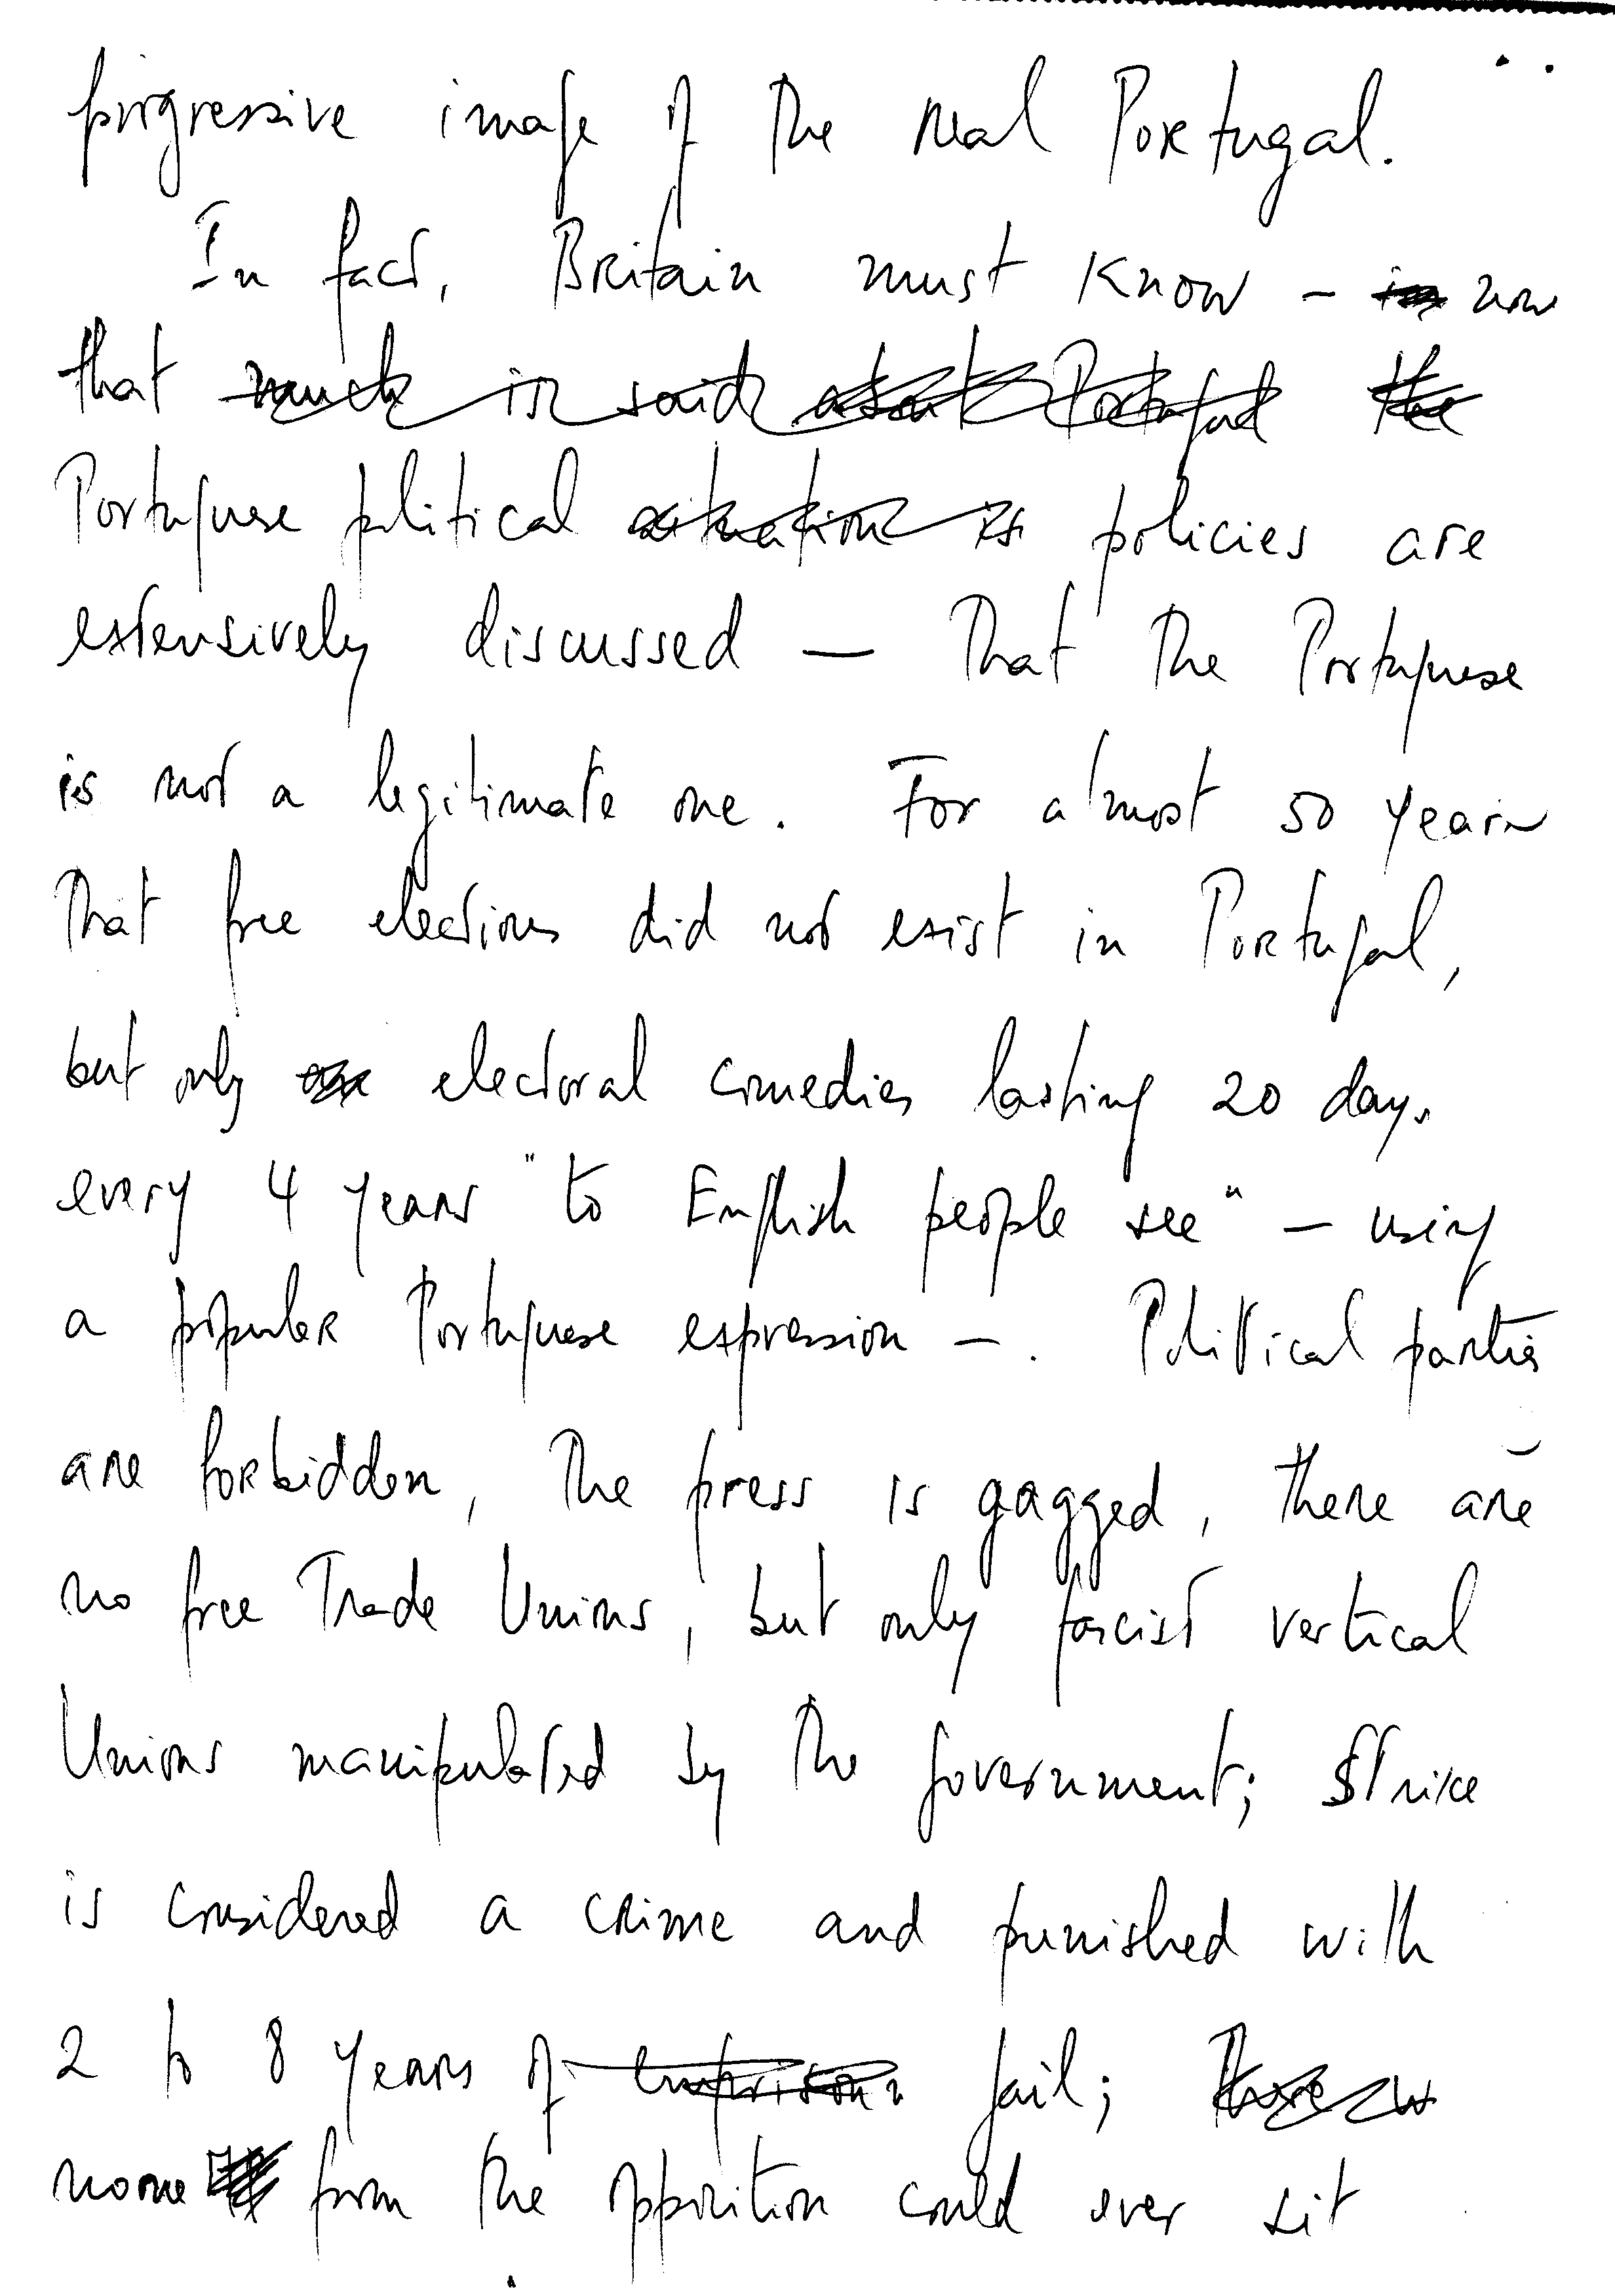 progressive image of the real Portugal.
In fact, Britain must know - in now
that much is said about Portugal the
Portuguese political situation is policies are
extensively discussed — that the Portuguese
is not a legitimate one. For almost 50 years
that free elections did not exist in Portugal,
but only electoral comedies lasting 20 days
every 4 years "to English people see" - using
a popular Portuguese expression -. Political parties
are forbidden, the press is gagged, there are
no free Trade Unions, but only fascist vertical
Unions manipulated by the government; strike
is considered a crime and punished with
2 to 8 years of emprison jail; there is
none from the opposition could ever sit